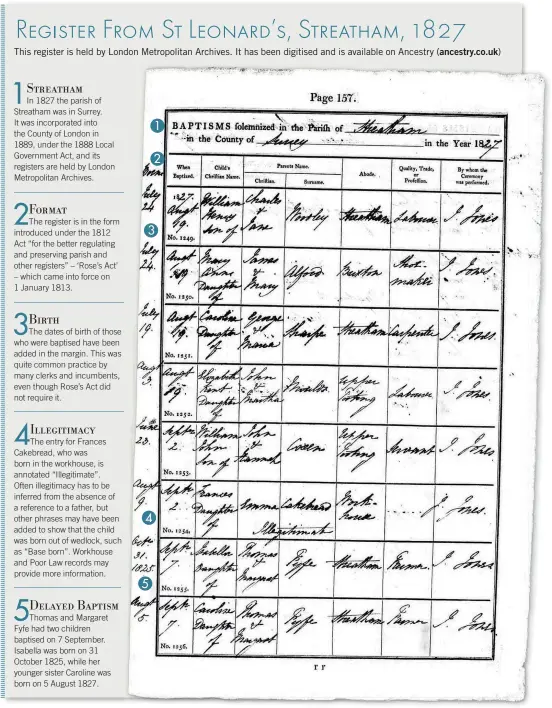 REGISTER FROM ST LEONARD'S, STREATHAM, 1827
This register is held by London Metropolitan Archives. It has been digitised and is available on Ancestry (ancestry.co.uk)
1 STREATHAM
In 1827 the parish of
Streatham was in Surrey.
It was incorporated into
the County of London in
1889, under the 1888 Local
Government Act, and its
registers are held by London
Metropolitan Archives.
2 FORMAT
The register is in the form
introduced under the 1812
Act "for the better regulating
and preserving parish and
other registers" – 'Rose's Act'
– which came into force on
1 January 1813.
3 BIRTH
The dates of birth of those
who were baptised have been
added in the margin. This was
quite common practice by
many clerks and incumbents,
even though Rose's Act did
not require it.
4 ILLEGITIMACY
The entry for Frances
Cakebread, who was
born in the workhouse, is
annotated "Illegitimate".
Often illegitimacy has to be
inferred from the absence of
a reference to a father, but
other phrases may have been
added to show that the child
was born out of wedlock, such
as "Base born". Workhouse
and Poor Law records may
provide more information.
5 DELAYED BAPTISM
Thomas and Margaret
Fyfe had two children
baptised on 7 September.
Isabella was born on 31
October 1825, while her
younger sister Caroline was
born on 5 August 1827.
Page 157.
1 BAPTISMS solemnized in the Parish of Streatham
in the County of Surrey in the Year 1827
2
When Baptized. Child's Christian Name. Parents Name. Christian. Surname. Abode. Quality, Trade, or Profession. By whom the Ceremony was performed.
July 24 1827. Augt 19. No. 1249. William Henry Son of Charles & Jane Streatham Labourer J. Jones
3
July 24. Augt 19 No. 1250. Mary Anne Daughter of James & Mary Alford Brixton Shoemaker J. Jones.
July 19. Augt 19. No. 1251. Caroline Daughter of George & Maria Sharpe Streatham Carpenter J. Jones.
Augt 3. Augt 19. No. 1252. Elizabeth Daughter of John & Martha Upper Tooting Labourer J. Jones.
June 23. Septr 2. No. 1253. William John Son of John & Hannah Green Upper Tooting Servant J. Jones.
Augt 9 Septr 2. No. 1254. Frances Daughter of Emma Cakebread Illegitimate Workhouse J. Jones.
4
Octr 31. 1825 Septr 7 No. 1255. Isabella Daughter of Thomas & Margaret Fyfe Streatham Farmer J. Jones
5
Augt 5. Septr 7. No. 1256. Caroline Daughter of Thomas & Margaret Fyfe Streatham Farmer J. Jones
r r